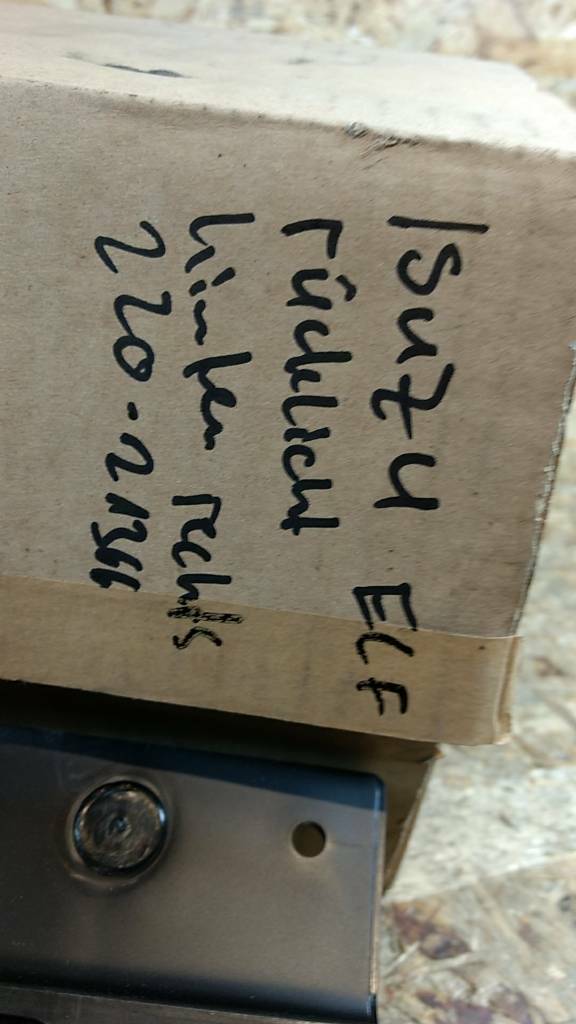 Isuzu ELF
rücklicht
hinten rechts
220-21366